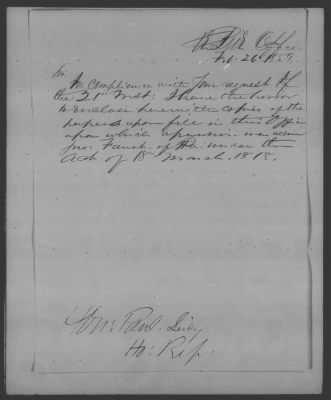 Office
Feb. 26 1857
Sir
In compliance with your request of
the 21st Inst. I have the honor
to enclose herewith copies of the
papers upon file in this Office
upon which a pension was allowed
under the
Act of 18 March 1818.
Hon: Paul Leidy
Ho: Rep: